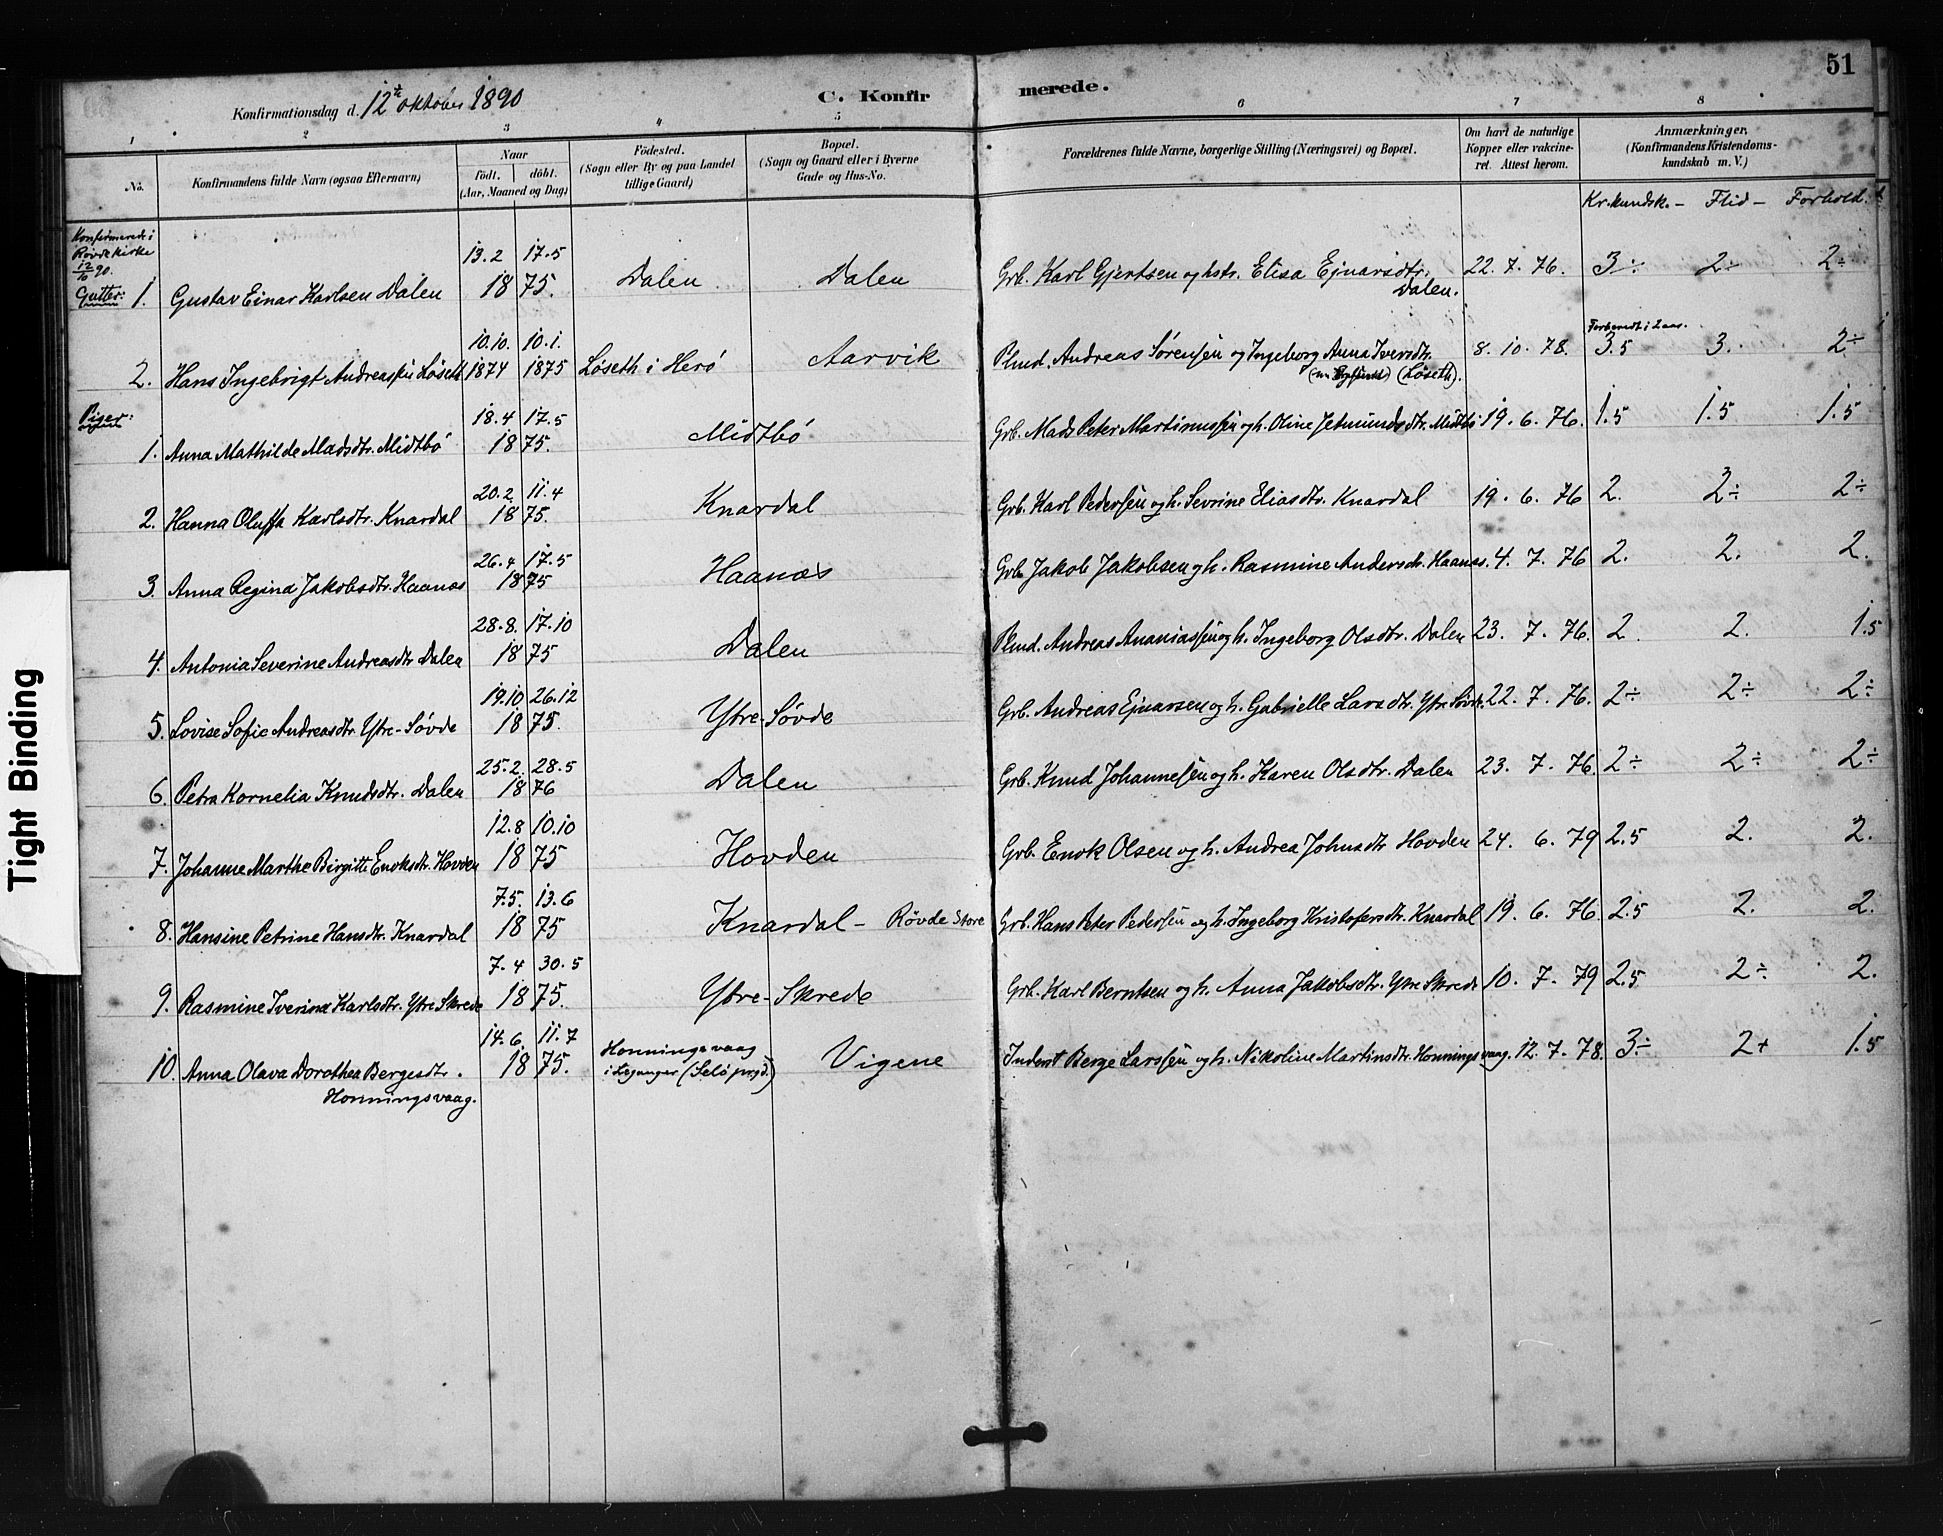 51
Konfirmationsdag d. 12te oktober 1890
C. Konfirmerede.
1 2 3 4 5 6 7 8
No.
Konfirmandens fulde Navn (ogsaa Efternavn)
Naar
födt. döbt.
(Aar, Maaned og Dag)
Födested.
(Sogn eller By og paa Landet
tillige Gaard)
Bopæl.
(Sogn og Gaard eller i Byerne
Gade og Hus-No.
Forældrenes fulde Navne, borgerlige Stilling (Næringsvei) og Bopæl.
Om havt de naturlige
Kopper eller vakcine-
ret. Attest herom.
Anmærkninger,
(Konfirmandens Kristendoms-
kundskab m. V.)
Kr.kundsk. – Flid – Forhold.
Konfirmerede i
Røvde kirke
12/10 90.
Gutter:
13.2 17.5
1. Gustav Einar Karlsen Dalen 18 75. Dalen Dalen Grb. Karl Gjertsen og hstr. Elisa Ejnarsdtr. Dalen. 22. 7. 76. 3÷ 2÷ 2÷
10.10. 10.1. Forberedt i 2 aar.
2. Hans Ingebrigt Andreassen Løseth 1874 1875 Løseth i Herø Aarvik Plmd. Andreas Sørensen og Ingeborg Anna Iversdtr. (Løseth). 8. 10. 78. 3.5 3. 2÷
Piger:
18.4 17.5
1. Anna Mathilde Madsdtr. Midtbø 18 75. Midtbø Grb. Mads Peter Martinussen og h. Oline Jetmundsdtr. Midtbø 19. 6. 76. 1.5 1.5 1.5
20.2. 11.4
2. Hanna Oluffa Karlsdtr. Knardal 18 75. Knardal Grb. Karl Pedersen og h. Sevrine Eliasdtr. Knardal 19. 6. 76 2. 2÷ 2÷
26.4 17.5
3. Anna Regina Jakobsdtr. Haanæs 18 75 Haanæs Grb. Jakob Jakobsen og h. Rasmine Andersdtr. Haanæs. 4. 7. 76 2. 2. 2.
28.8. 17.10
4. Antonia Severine Andreasdtr Dalen 18 75 Dalen Plmd. Andreas Ananiassen og h. Ingeborg Olsdtr. Dalen 23. 7. 76. 2. 2. 1.5
19.10. 26.12
5. Lovise Sofie Andreasdtr Ytre-Søvde 18 75. Ytre-Søvde Grb. Andreas Ejnarsen og h. Gabrielle Larsdtr. Ytre Søvde. 22. 7. 76. 2÷ 2÷ 2÷
25.2. 28.5
6. Petra Kornelia Knudsdtr. Dalen 18 76 Dalen Grb. Knud Johannessen og h. Karen Olsdtr. Dalen 23. 7. 76. 2÷ 2÷ 2÷
12.8 10.10
7. Johanne Marthe Birgitte Enoksdtr. Hovden 18 75 Hovden Grb. Enok Olsen og h. Andrea Johnsdtr Hovden 24. 6. 79 2.5 2. 2.
7.5. 13.6
8. Hansine Petrine Hansdtr. Knardal 18 75 Knardal – Røvde Store Grb. Hans Peter Pedersen og h. Ingeborg Kristofersdtr. Knardal 19. 6. 76. 2.5 2. 2.
7.4 30.5
9. Rasmine Iverina Karlsdtr. Ytre Skrede 18 75. Ytre-Skrede Grb. Karl Berntsen og h. Anna Jakobsdtr. Ytre Skrede 10. 7. 79 2.5 2÷ 2.
14.6. 11.7
10. Anna Olava Dorothea Bergesdtr. Honningsvaag. 18 75. Honningsvaag i Leganger (Selø prgd.) Vigene Inderst Berge Larssen og h. Nikoline Martinsdtr. Honningsvaag. 12. 7. 78. 3÷ 2+ 1.5
Tight Binding